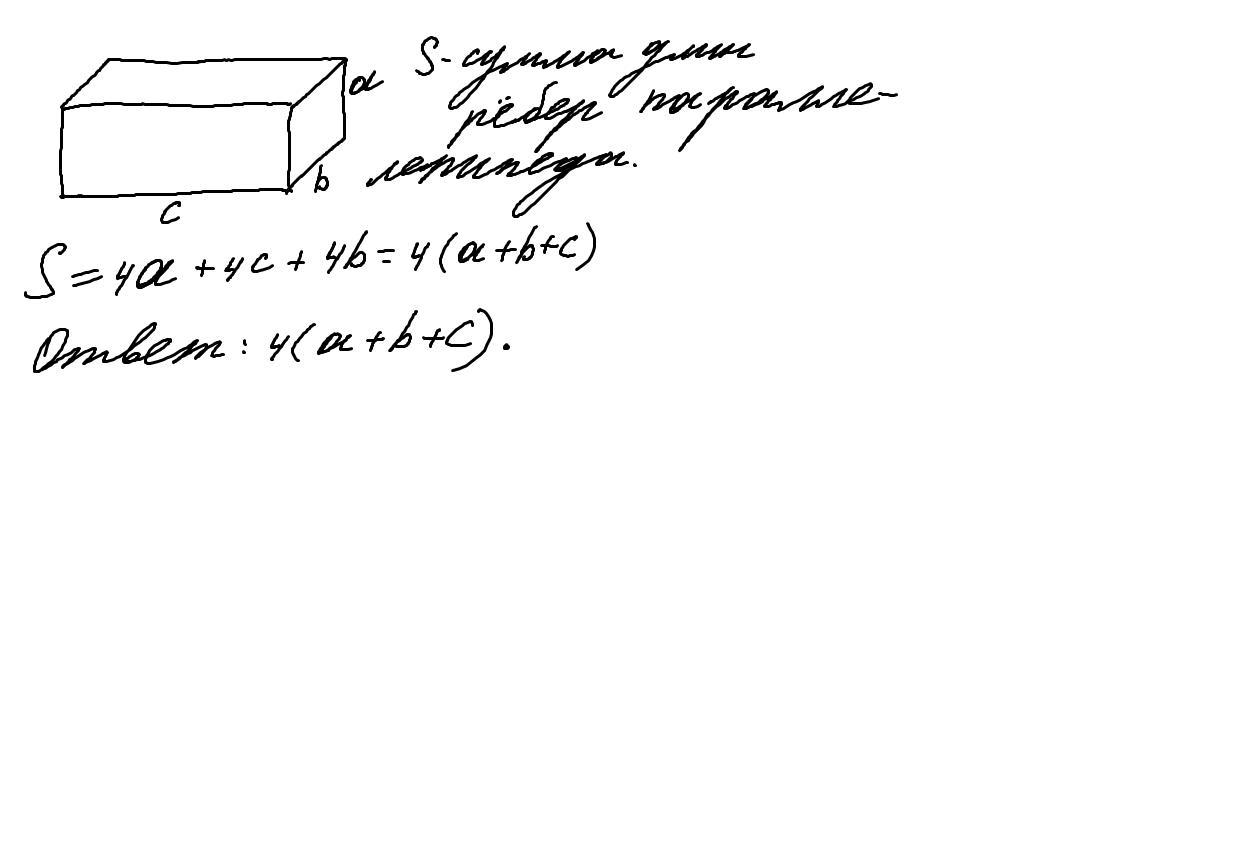 a
S-сумма длин
рёбер паралле-
лепипеда.
b
c
S = 4a + 4c + 4b = 4(a+b+c)
Ответ: 4(a+b+c).